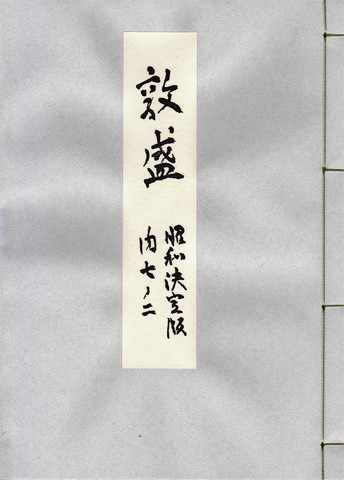 敦盛
昭和決定版
内七ノ二